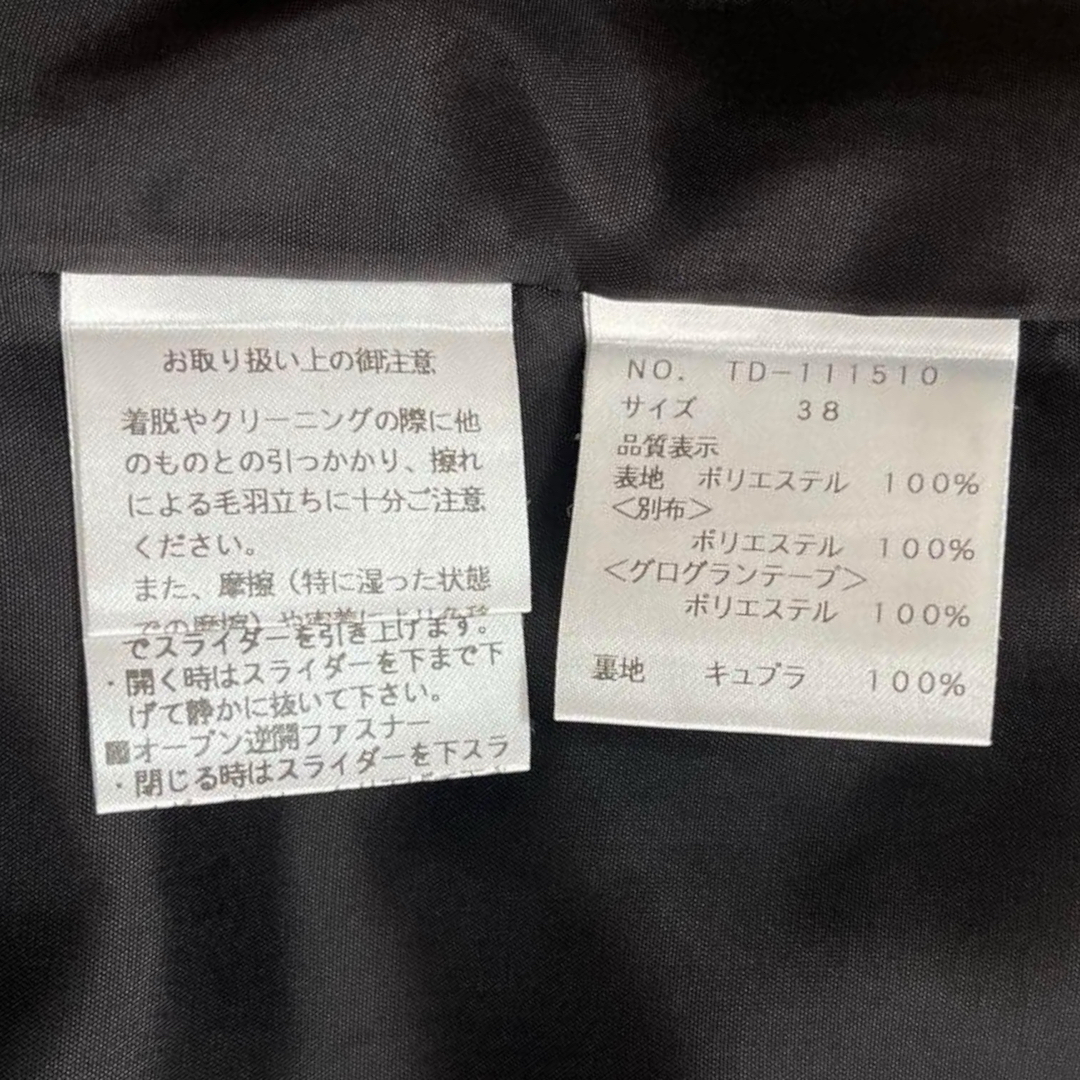 お取り扱い上の御注意
着脱やクリーニングの際に他
のものとの引っかかり、擦れ
による毛羽立ちに十分ご注意
ください。
また、摩擦（特に湿った状態
での摩擦）や
でスライダーを引き上げます。
・開く時はスライダーを下まで下
げて静かに抜いて下さい。
オープン逆開ファスナー
・閉じる時はスライダーを下スラ
NO. TD-111510
サイズ 38
品質表示
表地 ポリエステル 100%
<別布>
ポリエステル 100%
<グログランテープ>
ポリエステル 100%
裏地 キュプラ 100%